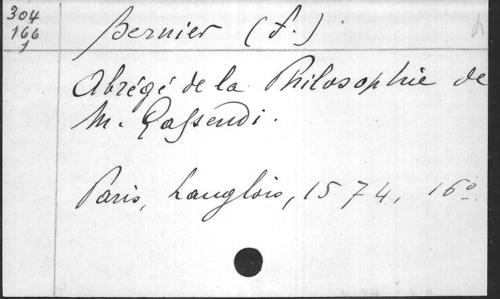 304
166
1
Bernier (F.)
Abrégé de la Philosophie de
M. Gassendi.
Paris, Langlois, 1574, 16º